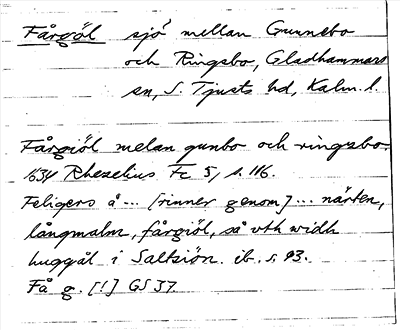 Fårgöl sjö mellan Gunnebo
och Ringsbo, Gladhammars
sn, S. Tjusts hd, Kalm. l.
Fårgiöl melan gunbo och ringzbo.
1634 Rhezelius Fc 5, s. 116.
Feligers å ... [rinner genom] ... närten,
långmalm, fårgiöl, så vth widh
huggäl i Saltziön. ib. s. 93.
Få g. [!] GS 37.